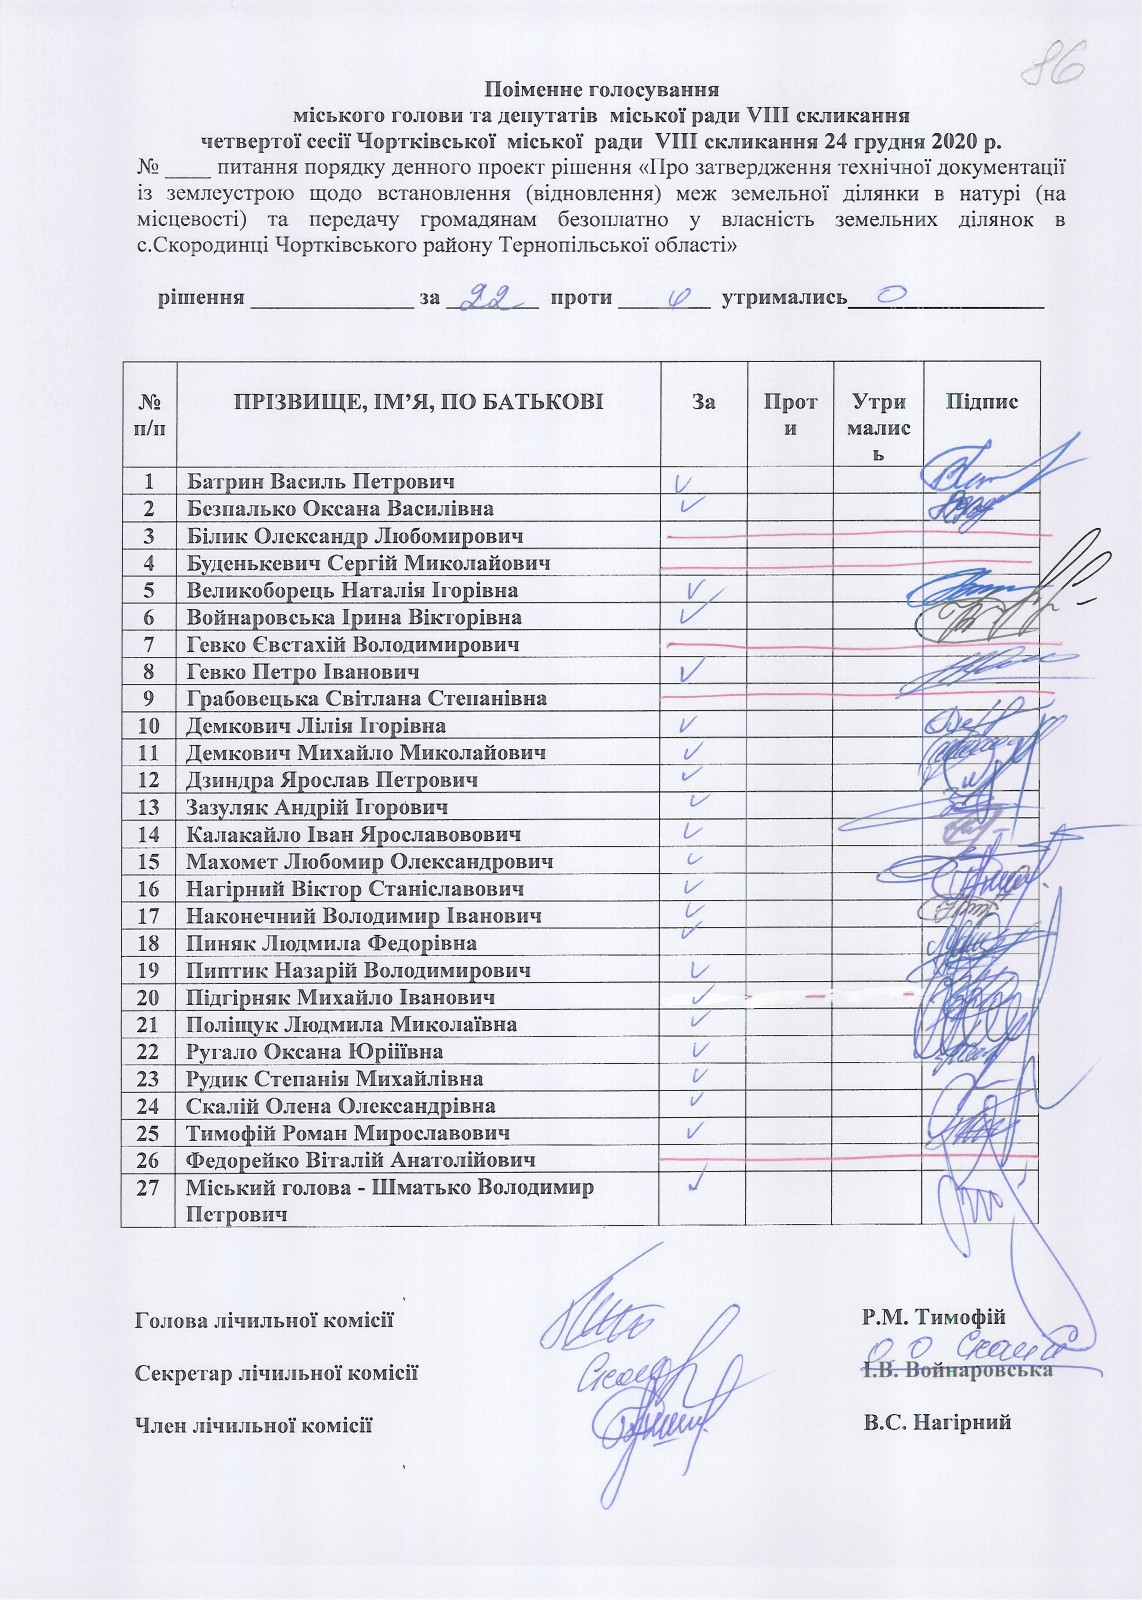 86
Поіменне голосування
міського голови та депутатів міської ради VIII скликання
четвертої сесії Чортківської міської ради VIII скликання 24 грудня 2020 р.
№ ____ питання порядку денного проект рішення «Про затвердження технічної документації
із землеустрою щодо встановлення (відновлення) меж земельної ділянки в натурі (на
місцевості) та передачу громадянам безоплатно у власність земельних ділянок в
с.Скородинці Чортківського району Тернопільської області»
рішення ______________ за 22 проти ________ утримались 0
№ п/п ПРІЗВИЩЕ, ІМ’Я, ПО БАТЬКОВІ За Проти Утримались Підпис
1 Батрин Василь Петрович ✓
2 Безпалько Оксана Василівна ✓
3 Білик Олександр Любомирович
4 Буденькевич Сергій Миколайович
5 Великоборець Наталія Ігорівна ✓
6 Войнаровська Ірина Вікторівна ✓
7 Гевко Євстахій Володимирович
8 Гевко Петро Іванович ✓
9 Грабовецька Світлана Степанівна
10 Демкович Лілія Ігорівна ✓
11 Демкович Михайло Миколайович ✓
12 Дзиндра Ярослав Петрович ✓
13 Зазуляк Андрій Ігорович ✓
14 Калакайло Іван Ярославовович ✓
15 Махомет Любомир Олександрович ✓
16 Нагірний Віктор Станіславович ✓
17 Наконечний Володимир Іванович ✓
18 Пиняк Людмила Федорівна ✓
19 Пиптик Назарій Володимирович ✓
20 Підгірняк Михайло Іванович ✓
21 Поліщук Людмила Миколаївна ✓
22 Ругало Оксана Юріїївна ✓
23 Рудик Степанія Михайлівна ✓
24 Скалій Олена Олександрівна ✓
25 Тимофій Роман Мирославович ✓
26 Федорейко Віталій Анатолійович
27 Міський голова - Шматько Володимир ✓
Петрович
Голова лічильної комісії Р.М. Тимофій
О О Скалій
Секретар лічильної комісії І.В. Войнаровська
Член лічильної комісії В.С. Нагірний